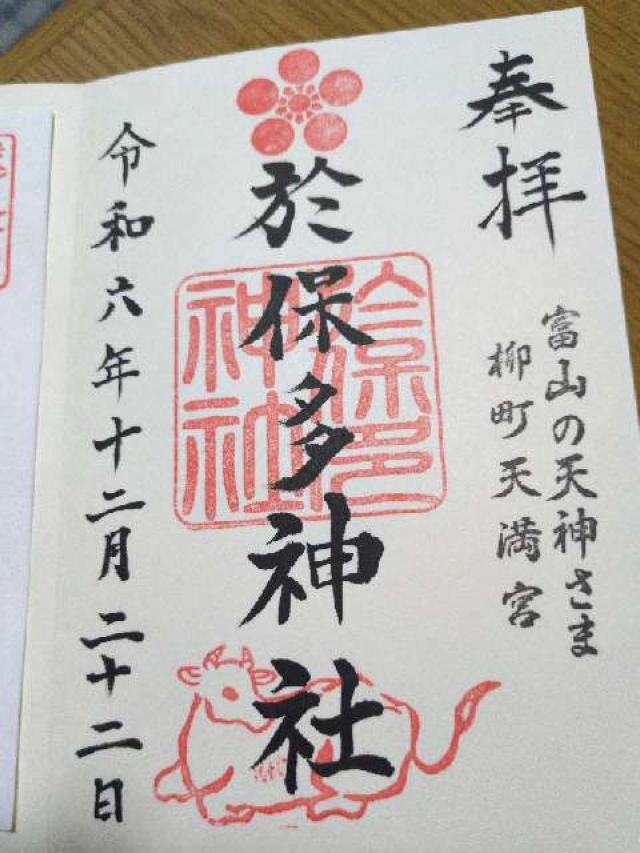 奉拝
富山の天神さま
柳町天満宮
於保多神社
令和六年十二月二十二日